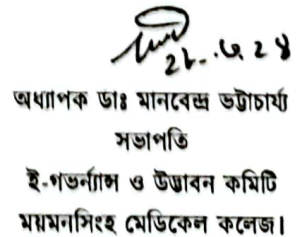 ২৮.৩.২৪
অধ্যাপক ডাঃ মানবেন্দ্র ভট্টাচার্য্য
সভাপতি
ই-গভর্ন্যান্স ও উদ্ভাবন কমিটি
ময়মনসিংহ মেডিকেল কলেজ।